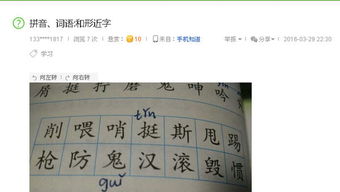 拼音、词语和形近字
133****1817 | 浏览 7 次 | 悬赏: 10 | 来自: 手机知道 举报 | 分享 | 2016-03-29 22:30
学习
向左转 | 向右转
屑 挺 拧 磨 鬼 呻 吟
tǐn
削 喂 哨 挺 斯 甩 踢
枪 防 鬼 汉 滚 毁 惯
guǐ